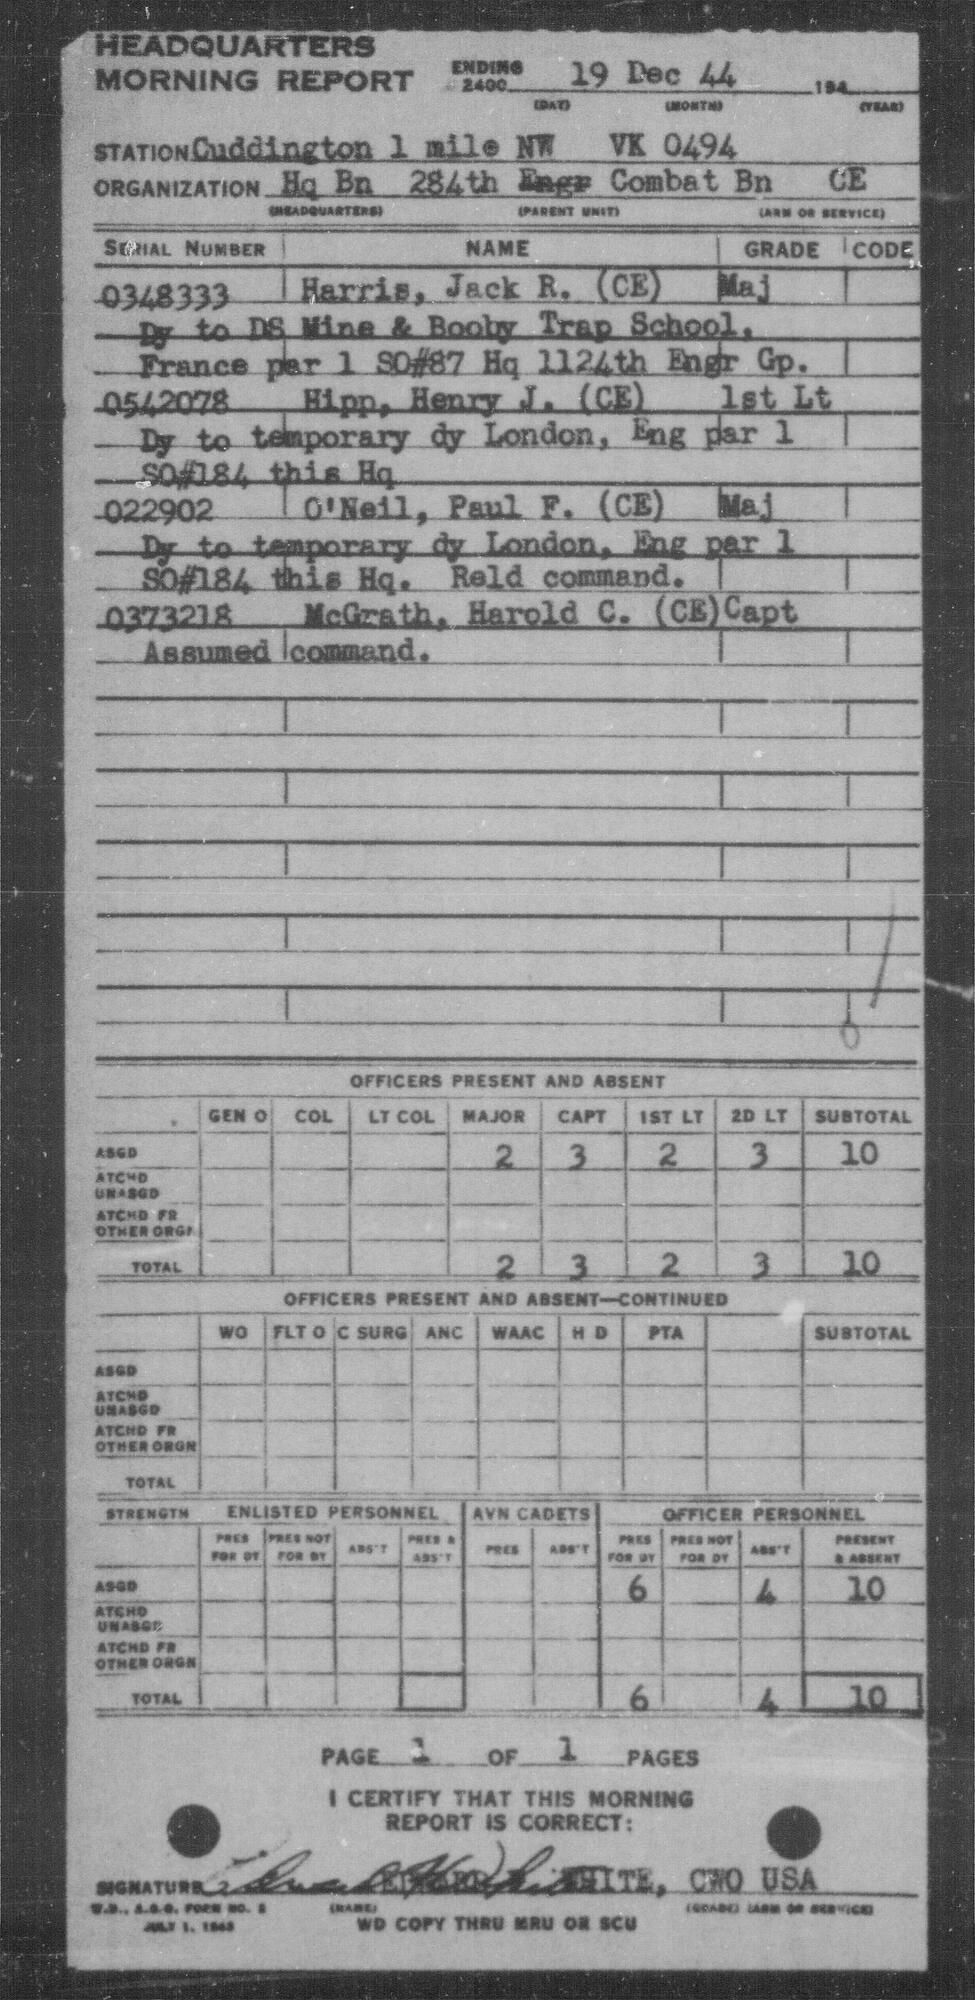 HEADQUARTERS
MORNING REPORT ENDING 2400 19 Dec 44 194
(DAY) (MONTH) (YEAR)
STATION Cuddington 1 mile NW VK 0494
ORGANIZATION Hq Bn 284th Engr Combat Bn CE
(HEADQUARTERS) (PARENT UNIT) (ARM OR SERVICE)
SERIAL NUMBER NAME GRADE CODE
0348333 Harris, Jack R. (CE) Maj
Dy to DS Mine & Booby Trap School,
France par 1 SO#87 Hq 1124th Engr Gp.
0542078 Hipp, Henry J. (CE) 1st Lt
Dy to temporary dy London, Eng par 1
SO#184 this Hq
022902 O'Neil, Paul F. (CE) Maj
Dy to temporary dy London, Eng par 1
SO#184 this Hq. Reld command.
0373218 McGrath, Harold C. (CE) Capt
Assumed command.
OFFICERS PRESENT AND ABSENT
GEN O COL LT COL MAJOR CAPT 1ST LT 2D LT SUBTOTAL
ASGD 2 3 2 3 10
ATCHD UNASGD
ATCHD FR OTHER ORGN
TOTAL 2 3 2 3 10
OFFICERS PRESENT AND ABSENT—CONTINUED
WO FLT O C SURG ANC WAAC H D PTA SUBTOTAL
ASGD
ATCHD UNASGD
ATCHD FR OTHER ORGN
TOTAL
STRENGTH ENLISTED PERSONNEL AVN CADETS OFFICER PERSONNEL
PRES FOR DY PRES NOT FOR DY ABS'T PRES & ABS'T PRES ABS'T PRES FOR DY PRES NOT FOR DY ABS'T PRESENT & ABSENT
ASGD 6 4 10
ATCHD UNASGD
ATCHD FR OTHER ORGN
TOTAL 6 4 10
PAGE 1 OF 1 PAGES
I CERTIFY THAT THIS MORNING
REPORT IS CORRECT:
SIGNATURE WHITE, CWO USA
W.D., A.G.O. FORM NO. (NAME) (GRADE) (ARM OR SERVICE)
JULY 1, 1943 WD COPY THRU MRU OR SCU